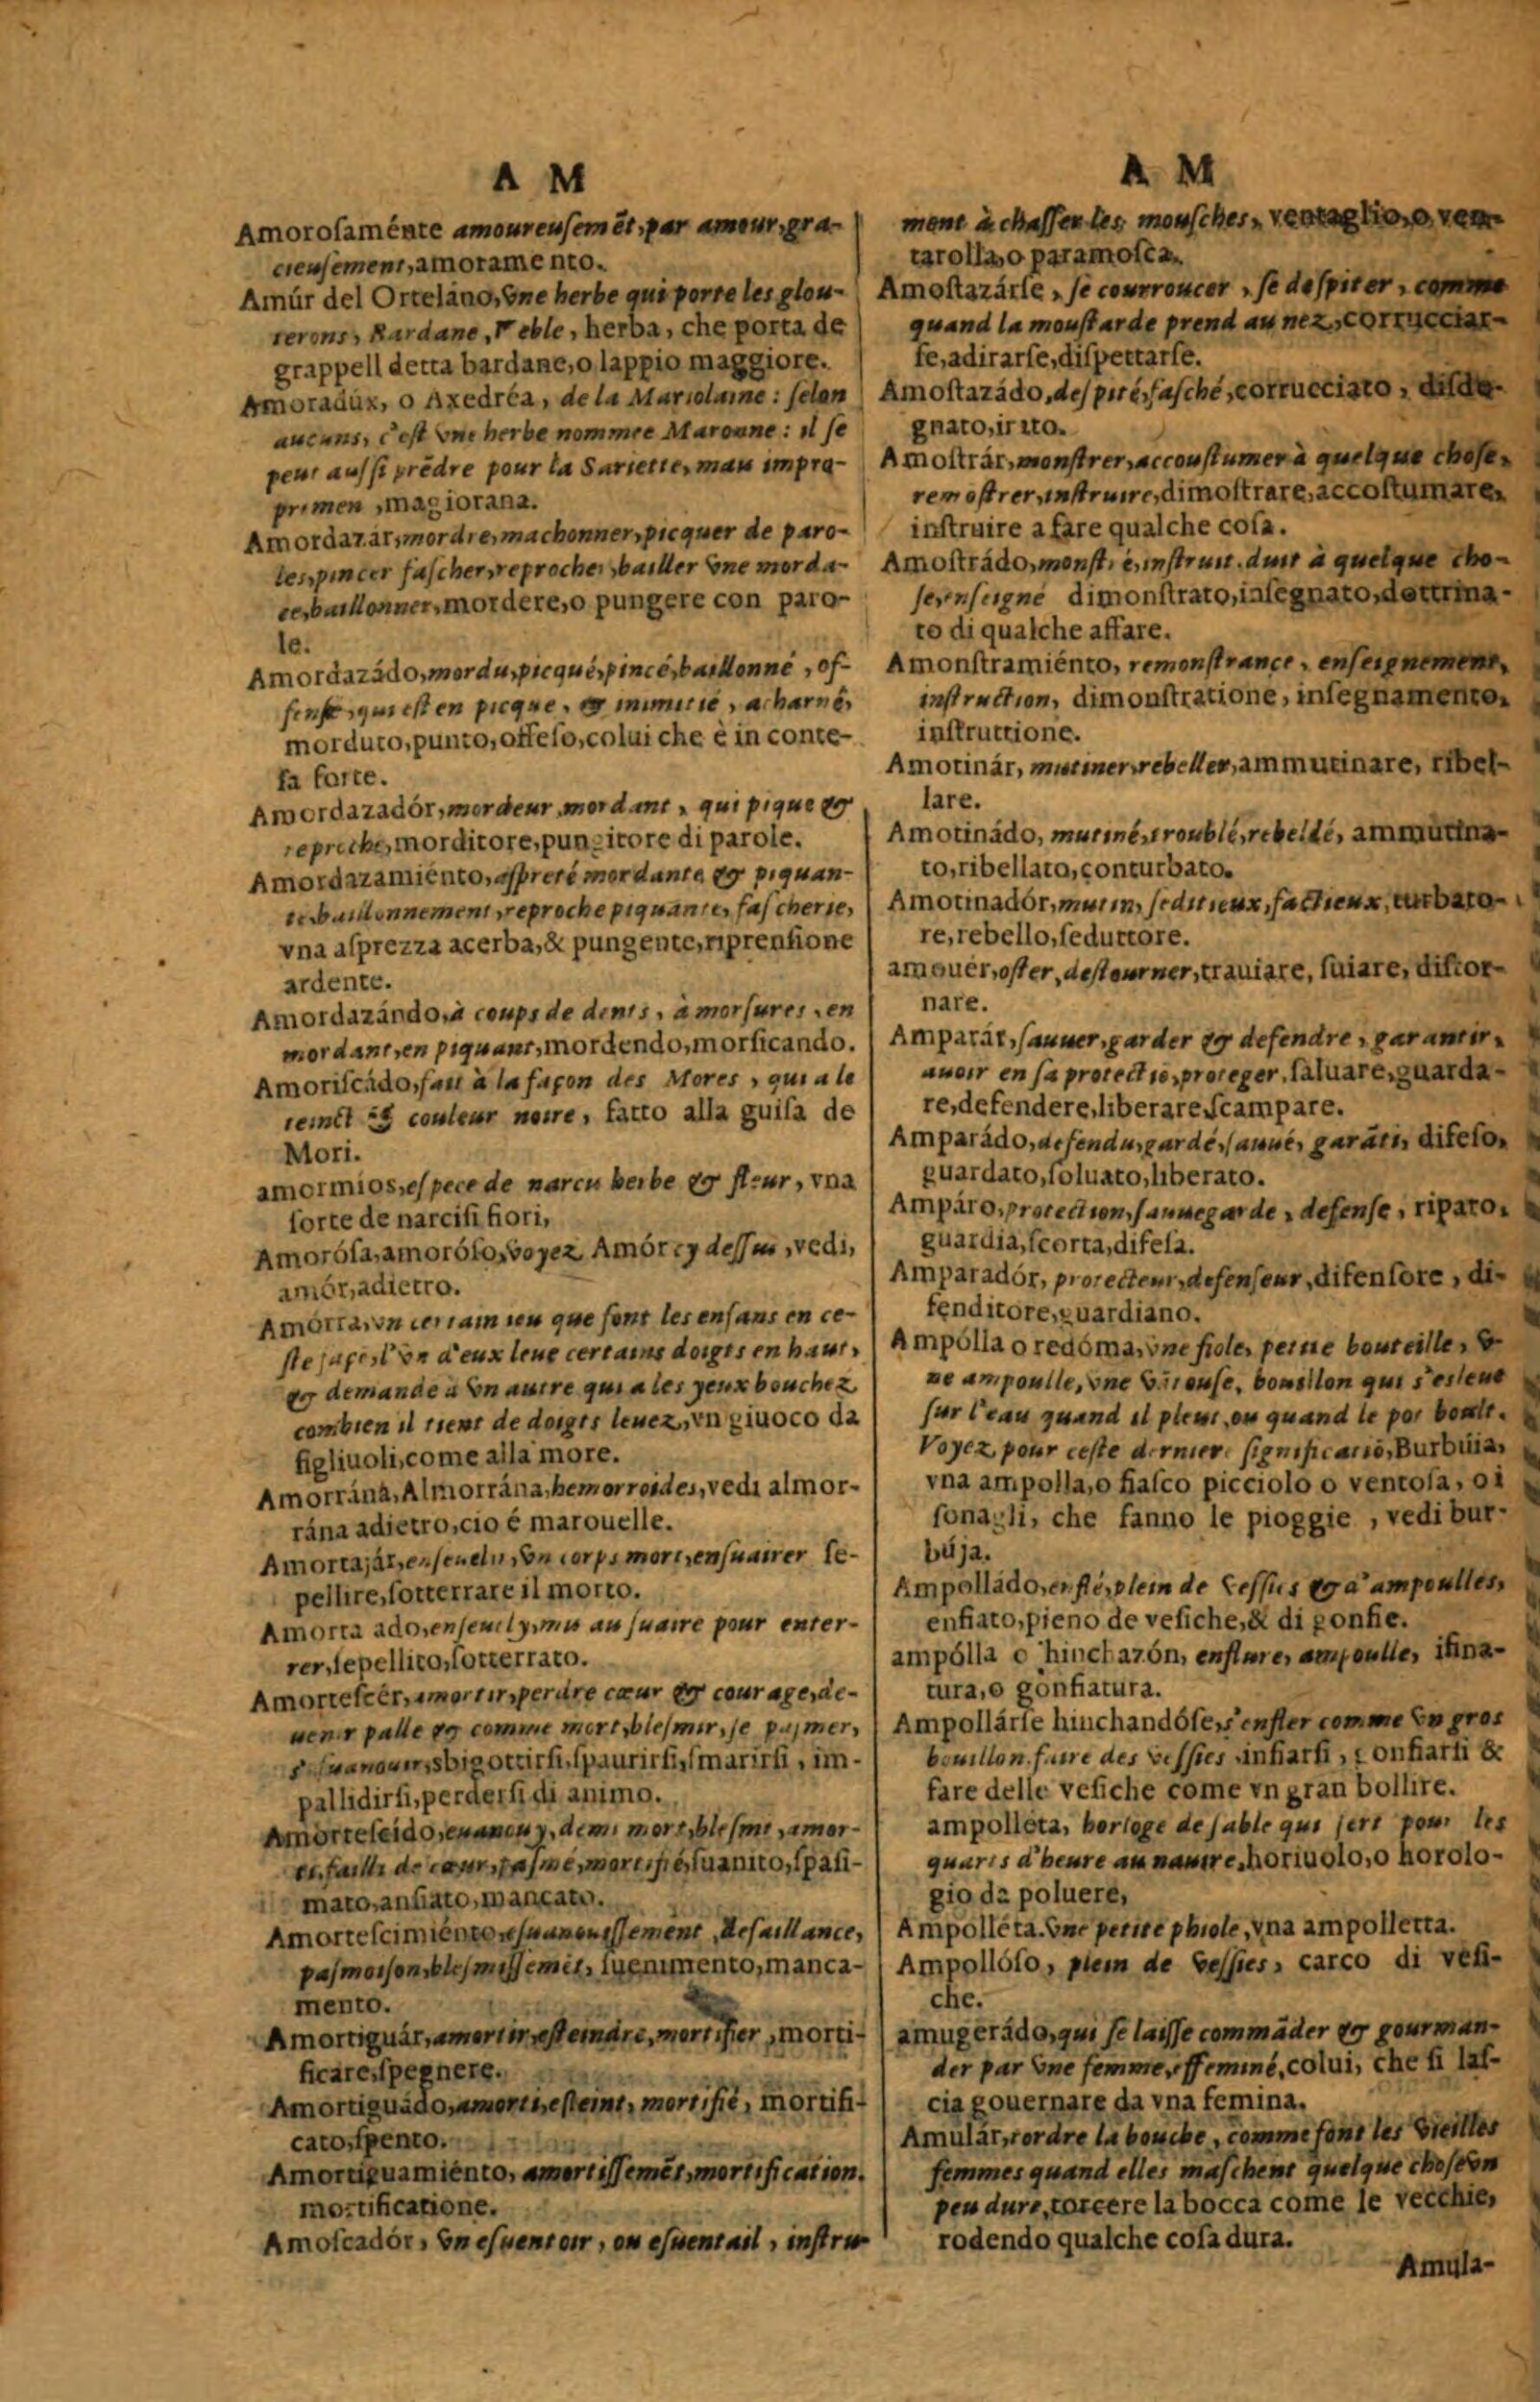 A M
Amoroſaménte amoureuſemẽt, par amour, gra-
cieuſement, amoramento.
Amúr del Orteláno, vne herbe qui porte les glou-
terons, Bardane, Yeble, herba, che porta de
grappell detta bardane, o lappio maggiore.
Amoradúx, o Axedréa, de la Mariolaine: ſelon
aucuns, c'eſt vne herbe nommee Maronne: il ſe
peut auſſi prẽdre pour la Sariette, mau impro-
primen, magiorana.
Amordazár, mordre, machonner, picquer de paro-
les, pincer faſcher, reprocher, bailler vne morda-
ce, baillonner, mordere, o pungere con paro-
le.
Amordazádo, mordu, picqué, pincé, baillonné, of-
fenſé, qui eſt en picque, & inimitié, acharné,
morduto, punto, offeſo, colui che è in conte-
ſa forte.
Amordazadór, mordeur, mordant, qui pique &
reproche, morditore, pungitore di parole.
Amordazamiénto, aſpreté mordante & piquan-
te, baillonnement, reproche piquante, faſcherie,
vna aſprezza acerba, & pungente, riprenſione
ardente.
Amordazándo, à coups de dents, à morſures, en
mordant, en piquant, mordendo, morſicando.
Amoriſcádo, fait à la façon des Mores, qui a le
teinct & couleur noire, fatto alla guiſa de
Mori.
amormíos, eſpece de narcis herbe & fleur, vna
ſorte de narciſi fiori,
Amoróſa, amoróſo, voyez Amór cy deſſus, vedi,
amór, adietro.
Amórra, vn certain ieu que font les enfans en ce-
ſte façõ, l'vn d'eux leue certains doigts en haut,
& demande à vn autre qui a les yeux bouchez
combien il tient de doigts leuez, vn giuoco da
figliuoli, come alla more.
Amorrána, Almorrána, hemorroides, vedi almor-
rána adietro, cio é marouelle.
Amortajár, enſeuelir, vn corps mort, enſuairer ſe-
pellire, ſotterrare il morto.
Amorta ado, enſeuely, mis au ſuaire pour enter-
rer, ſepellito, ſotterrato.
Amorteſcér, amortir, perdre cœur & courage, de-
uenir palle & comme mort, bleſmir, ſe paſmer,
s'eſuanouir, sbigottirſi, ſpaurirſi, ſmarirſi, im-
pallidirſi, perderſi di animo.
Amorteſcído, euanouy, demi mort, bleſme, amor-
ti, failli de cœur, paſmé, mortifié, ſuanito, ſpaſi-
mato, anſiato, mancato.
Amorteſcimiénto, eſuanouiſſement, defaillance,
paſmoiſon, bleſmiſſemẽt, ſuenimento, manca-
mento.
Amortiguár, amortir, eſteindre, mortifier, morti-
ficare, ſpegnere.
Amortiguádo, amorti, eſteint, mortifié, mortifi-
cato, ſpento.
Amortiguamiénto, amortiſſemẽt, mortification.
mortificatione.
Amoſcadór, vn eſuentoir, ou eſuentail, inſtru-
A M
ment à chaſſer les mouſches, ventaglio, o ven-
tarolla, o paramoſca.
Amoſtazárſe, ſe courroucer, ſe deſpiter, comme
quand la mouſtarde prend au nez, corrucciar-
ſe, adirarſe, diſpettarſe.
Amoſtazádo, deſpité, faſché, corrucciato, diſde-
gnato, irito.
Amoſtrár, monſtrer, accouſtumer à quelque choſe,
remoſtrer, inſtruire, dimoſtrare, accoſtumare,
inſtruire a fare qualche coſa.
Amoſtrádo, monſtré, inſtruit, duit à quelque cho-
ſe, enſeigné dimonſtrato, inſegnato, dottrina-
to di qualche affare.
Amonſtramiénto, remonſtrance, enſeignement,
inſtruction, dimonſtratione, inſegnamento,
inſtruttione.
Amotinár, mutiner, rebeller, ammutinare, ribel-
lare.
Amotinádo, mutiné, troublé, rebellé, ammutina-
to, ribellato, conturbato.
Amotinadór, mutin, ſeditieux, factieux, turbato-
re, rebello, ſeduttore.
amouér, oſter, deſtourner, trauiare, ſuiare, diſtor-
nare.
Amparár, ſauuer, garder & defendre, garantir,
auoir en ſa protectiõ, proteger, ſaluare, guarda-
re, defendere, liberare, ſcampare.
Amparádo, defendu, gardé, ſauué, garãti, difeſo,
guardato, ſoluato, liberato.
Ampáro, protection, ſauuegarde, defenſe, riparo,
guardia, ſcorta, difeſa.
Amparadór, protecteur, defenſeur, difenſore, di-
fenditore, guardiano.
Ampólla o redóma, vne fiole, petite bouteille, v-
ne ampoulle, vne vẽtouſe, bouillon qui s'esleue
ſur l'eau quand il pleut, ou quand le pot boult.
Voyez pour ceſte derniere ſignificatiõ, Burbúia,
vna ampolla, o fiaſco picciolo o ventoſa, o i
ſonagli, che fanno le pioggie, vedi bur-
búja.
Ampolládo, enflé, plein de veſſies & d'ampoulles,
enfiato, pieno de veſiche, & di gonfie.
ampólla o hinchazón, enflure, ampoulle, ifina-
tura, o gonfiatura.
Ampollárſe hinchandóſe, s'enfler comme vn gros
bouillon, faire des veſſies, infiarſi, gonfiarſi &
fare delle veſiche come vn gran bollire.
ampolléta, horloge de ſable qui ſert pour les
quarts d'heure au nauire, horiuolo, o horolo-
gio da poluere,
Ampolléta. vne petite phiole, vna ampolletta.
Ampollóſo, plein de veſſies, carco di veſi-
che.
amugerádo, qui ſe laiſſe commãder & gourman-
der par vne femme, effeminé, colui, che ſi laſ-
cia gouernare da vna femina.
Amulár, tordre la bouche, comme font les vieilles
femmes quand elles maſchent quelque choſe vn
peu dure, torcere la bocca come le vecchie,
rodendo qualche coſa dura.
Amula-